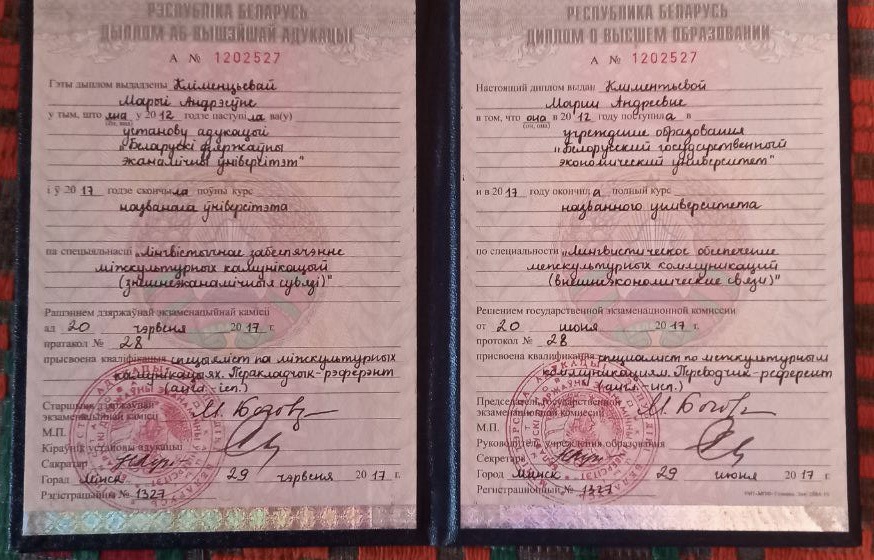 РЭСПУБЛІКА БЕЛАРУСЬ
ДЫПЛОМ АБ ВЫШЭЙШАЙ АДУКАЦЫІ
А № 1202527
Гэты дыплом выдадзены Кліменцьевай
Марыі Андрэеўне
у тым, што яна у 2012 годзе паступіла ва(у)
(ён, яна)
установу адукацыі
"Беларускі дзяржаўны
эканамічны ўніверсітэт"
і ў 2017 годзе скончыла поўны курс
названага ўніверсітэта
па спецыяльнасці "Лінгвістычнае забеспячэнне
міжкультурных камунікацый
(знешнеэканамічныя сувязі)"
Рашэннем дзяржаўнай экзаменацыйнай камісіі
ад 20 чэрвеня 2017 г.
пратакол № 28
прысвоена кваліфікацыя спецыяліст па міжкультурных
камунікацыях. Перакладчык-рэферэнт
(англ.-ісп.)
Старшыня дзяржаўнай
экзаменацыйнай камісіі
М.П.
Кіраўнік установы адукацыі
Сакратар
Горад Мінск 29 чэрвеня 2017 г.
Рэгістрацыйны № 1327
РЕСПУБЛИКА БЕЛАРУСЬ
ДИПЛОМ О ВЫСШЕМ ОБРАЗОВАНИИ
А № 1202527
Настоящий диплом выдан Климентьевой
Марии Андреевне
в том, что она в 2012 году поступила в
(он, она)
учреждение образования
"Белорусский государственный
экономический университет"
и в 2017 году окончила полный курс
названного университета
по специальности "Лингвистическое обеспечение
межкультурных коммуникаций
(внешнеэкономические связи)"
Решением государственной экзаменационной комиссии
от 20 июня 2017 г.
протокол № 28
присвоена квалификация специалист по межкультурным
коммуникациям. Переводчик-референт
(англ.-исп.)
Председатель государственной
экзаменационной комиссии
М.П.
Руководитель учреждения образования
Секретарь
Город Минск 29 июня 2017 г.
Регистрационный № 1327